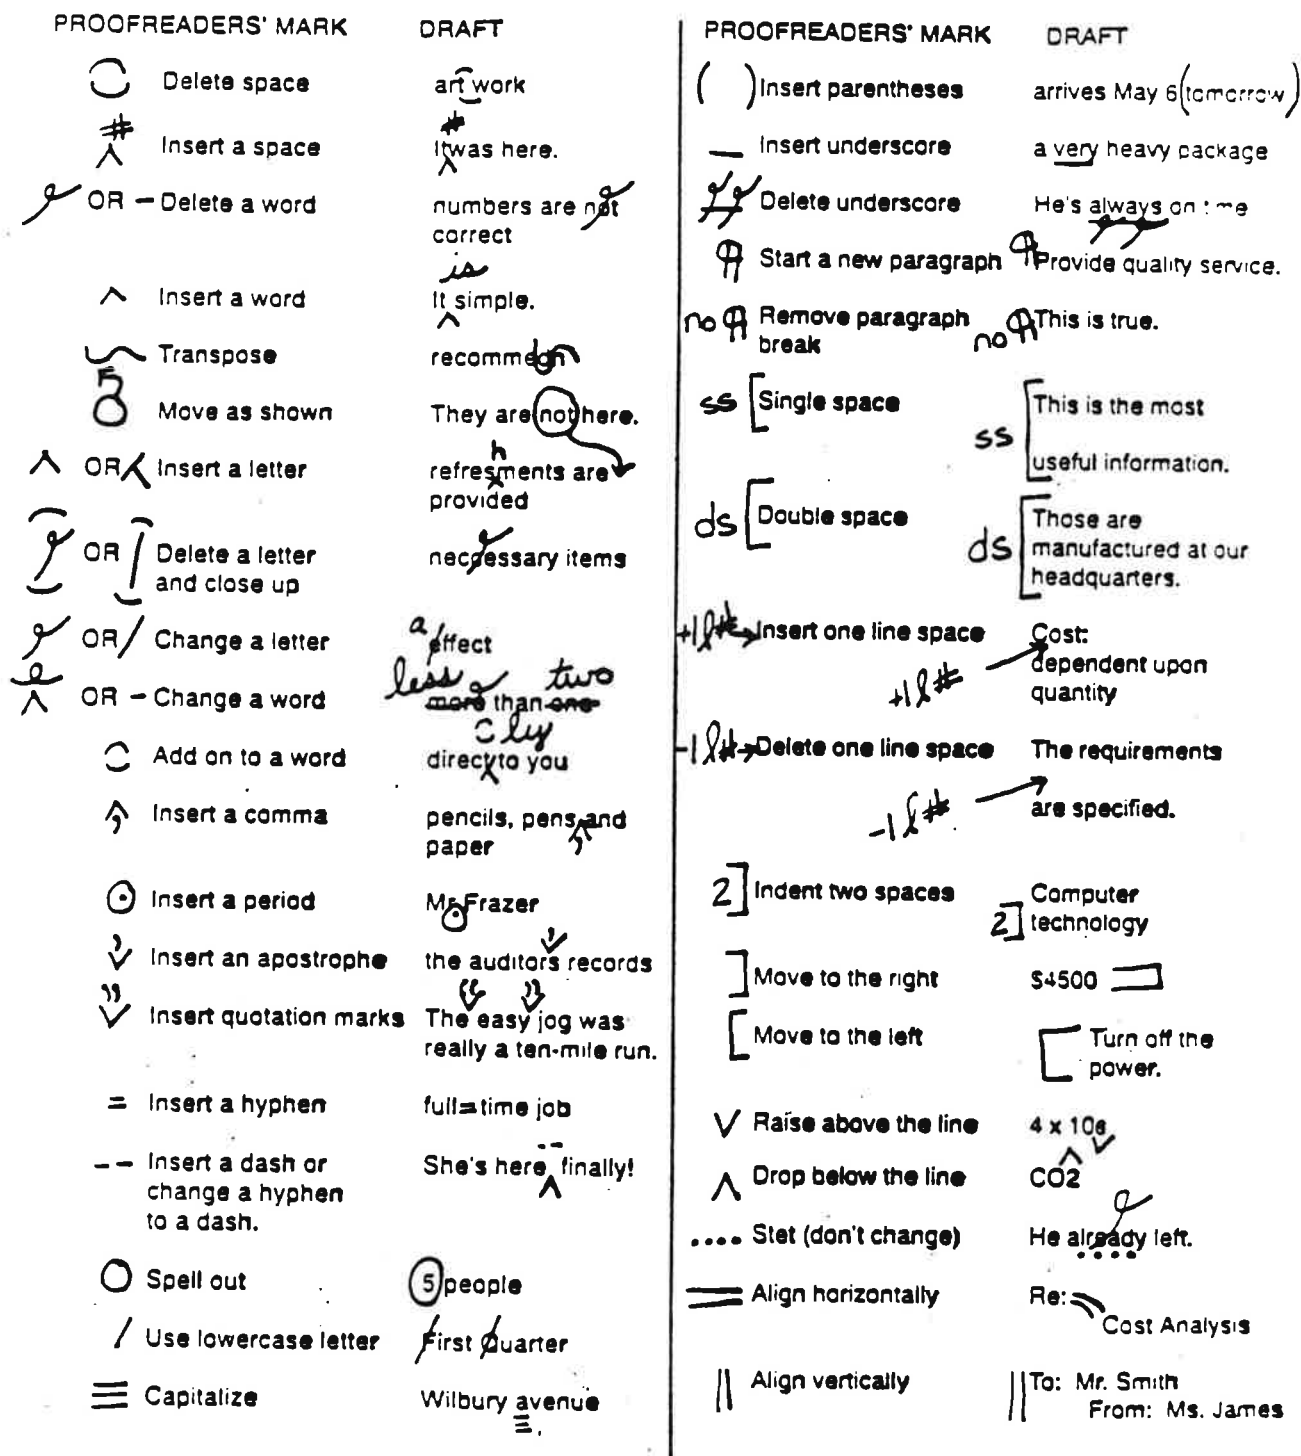 PROOFREADERS' MARK DRAFT
Delete space art work
#
# Insert a space Itwas here.
OR – Delete a word numbers are not
correct
is
Insert a word It simple.
Transpose recommedn
Move as shown They are not here.
h
OR Insert a letter refresments are
provided
OR Delete a letter
and close up
neccessary items
a
OR / Change a letter effect
less two
OR – Change a word more than one
ly
Add on to a word direct to you
Insert a comma pencils, pens and
, paper ,
Insert a period Mr Frazer
Insert an apostrophe the auditors records
Insert quotation marks The easy jog was
really a ten-mile run.
= Insert a hyphen full=time job
-- Insert a dash or
change a hyphen
to a dash.
--
She's here finally!
Spell out 5 people
/ Use lowercase letter First Quarter
Capitalize Wilbury avenue
PROOFREADERS' MARK DRAFT
( ) Insert parentheses arrives May 6 (tomorrow)
Insert underscore a very heavy package
Delete underscore He's always on time
¶ Start a new paragraph ¶ Provide quality service.
no ¶ Remove paragraph
break
no ¶ This is true.
ss [ Single space
This is the most
ss [
useful information.
ds [ Double space
Those are
ds [ manufactured at our
headquarters.
+1l# Insert one line space Cost:
dependent upon
+1l# quantity
-1l# Delete one line space The requirements
-1l# are specified.
2] Indent two spaces Computer
2] technology
] Move to the right $4500 ]
[ Move to the left [ Turn off the
power.
Raise above the line 4 x 106
Drop below the line CO2
.... Stet (don't change) He already left.
Align horizontally Re:
Cost Analysis
|| Align vertically || To: Mr. Smith
From: Ms. James